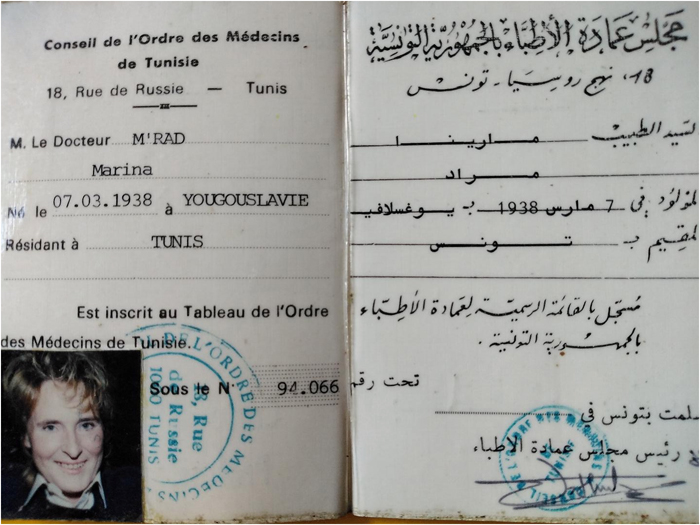 Conseil de l'Ordre des Médecins
de Tunisie
18, Rue de Russie — Tunis
M. Le Docteur M'RAD
Marina
Né le 07.03.1938 à YOUGOUSLAVIE
Résidant à TUNIS
Est inscrit au Tableau de l'Ordre
des Médecins de Tunisie.
Sous le N° 94.066
DE L'ORDRE DES MEDECINS
18, Rue
de Russie
1000 TUNIS
مجلس عمادة الأطباء بالجمهورية التونسية
18، نهج روسيا - تونس
لسيد الطبيب مارينا
مراد
لمولود في 7 مارس 1938 بـ يوغسلافيا
لمقيم بـ تونس
مسجل بالقائمة الرسمية لعمادة الأطباء
بالجمهورية التونسية .
تحت رقم
سلمت بتونس في
رئيس مجلس عمادة الأطباء